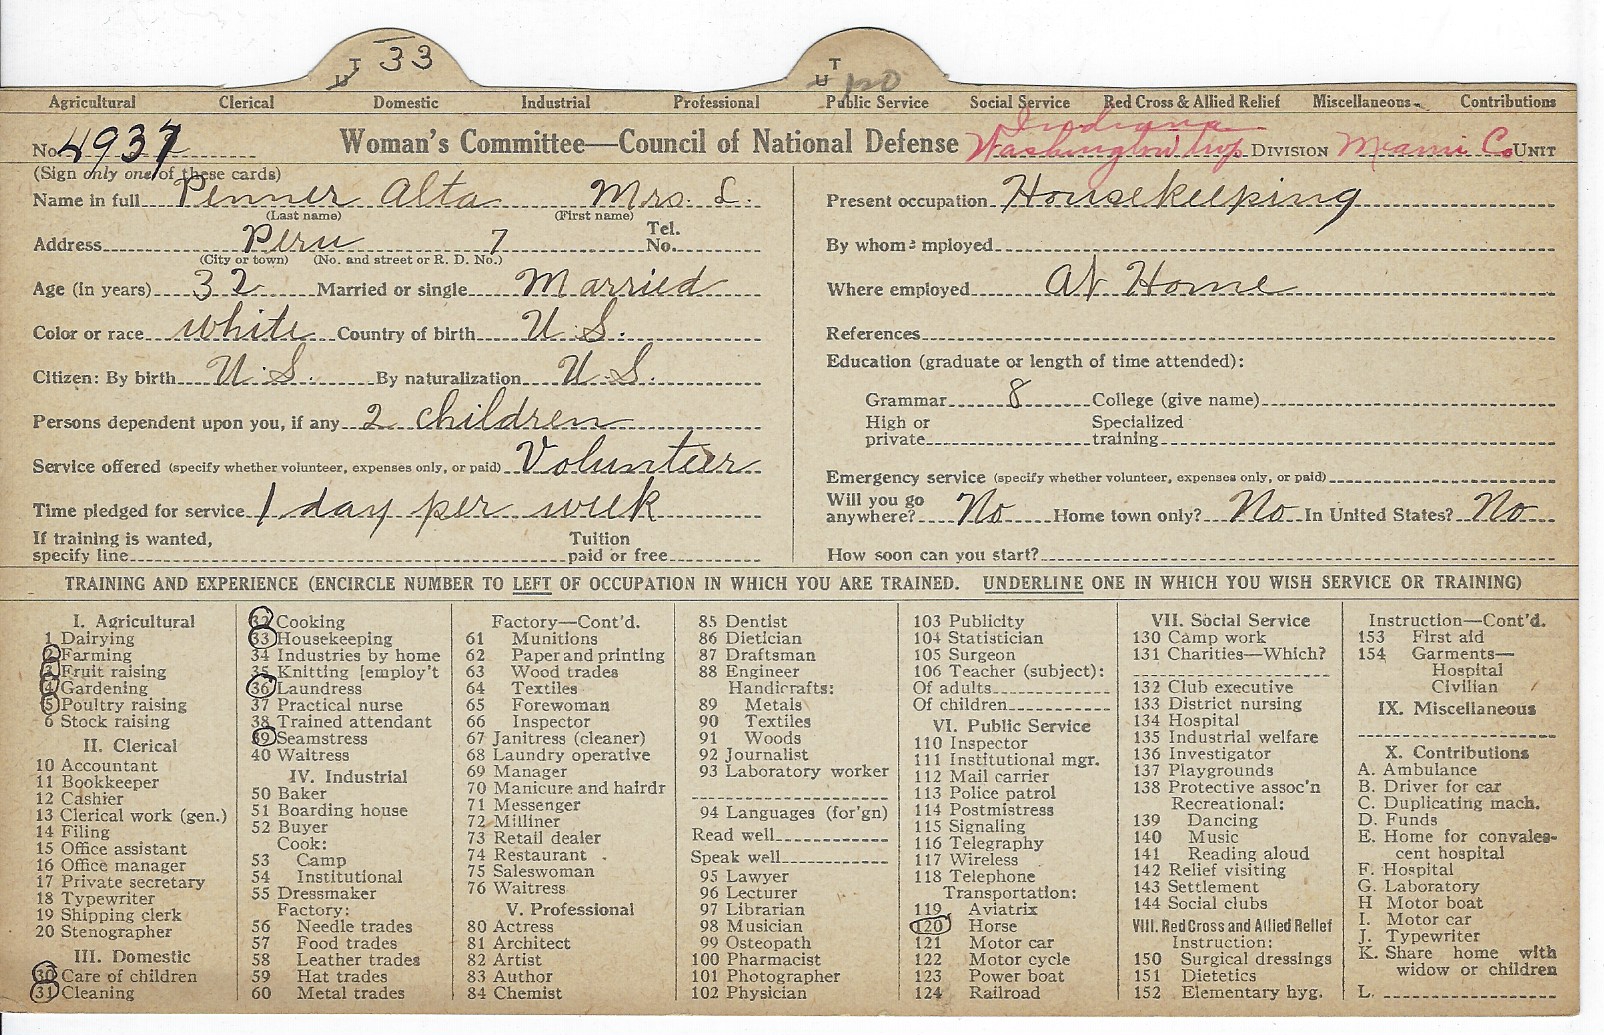 T 33 T
U U po
Agricultural Clerical Domestic Industrial Professional Public Service Social Service Red Cross & Allied Relief Miscellaneous Contributions
Indiana
No. 4937 Woman's Committee—Council of National Defense Washington twp DIVISION Miami Co. UNIT
(Sign only one of these cards)
Name in full Penner Alta Mrs. L.
(Last name) (First name)
Address Peru 7 Tel. No.
(City or town) (No. and street or R. D. No.)
Age (in years) 32 Married or single Married
Color or race white Country of birth U.S.
Citizen: By birth U.S. By naturalization U.S.
Persons dependent upon you, if any 2 children
Service offered (specify whether volunteer, expenses only, or paid) Volunteer
Time pledged for service 1 day per week
If training is wanted, Tuition
specify line paid or free
Present occupation Housekeeping
By whom employed
Where employed At Home
References
Education (graduate or length of time attended):
Grammar 8 College (give name)
High or Specialized
private training
Emergency service (specify whether volunteer, expenses only, or paid)
Will you go
anywhere? No Home town only? No In United States? No
How soon can you start?
TRAINING AND EXPERIENCE (ENCIRCLE NUMBER TO LEFT OF OCCUPATION IN WHICH YOU ARE TRAINED. UNDERLINE ONE IN WHICH YOU WISH SERVICE OR TRAINING)
I. Agricultural
1 Dairying
2 Farming
3 Fruit raising
4 Gardening
5 Poultry raising
6 Stock raising
II. Clerical
10 Accountant
11 Bookkeeper
12 Cashier
13 Clerical work (gen.)
14 Filing
15 Office assistant
16 Office manager
17 Private secretary
18 Typewriter
19 Shipping clerk
20 Stenographer
III. Domestic
30 Care of children
31 Cleaning
32 Cooking
33 Housekeeping
34 Industries by home
35 Knitting [employ't
36 Laundress
37 Practical nurse
38 Trained attendant
39 Seamstress
40 Waitress
IV. Industrial
50 Baker
51 Boarding house
52 Buyer
Cook:
53 Camp
54 Institutional
55 Dressmaker
Factory:
56 Needle trades
57 Food trades
58 Leather trades
59 Hat trades
60 Metal trades
Factory—Cont'd.
61 Munitions
62 Paper and printing
63 Wood trades
64 Textiles
65 Forewoman
66 Inspector
67 Janitress (cleaner)
68 Laundry operative
69 Manager
70 Manicure and hairdr
71 Messenger
72 Milliner
73 Retail dealer
74 Restaurant
75 Saleswoman
76 Waitress
V. Professional
80 Actress
81 Architect
82 Artist
83 Author
84 Chemist
85 Dentist
86 Dietician
87 Draftsman
88 Engineer
Handicrafts:
89 Metals
90 Textiles
91 Woods
92 Journalist
93 Laboratory worker
94 Languages (for'gn)
Read well
Speak well
95 Lawyer
96 Lecturer
97 Librarian
98 Musician
99 Osteopath
100 Pharmacist
101 Photographer
102 Physician
103 Publicity
104 Statistician
105 Surgeon
106 Teacher (subject):
Of adults
Of children
VI. Public Service
110 Inspector
111 Institutional mgr.
112 Mail carrier
113 Police patrol
114 Postmistress
115 Signaling
116 Telegraphy
117 Wireless
118 Telephone
Transportation:
119 Aviatrix
120 Horse
121 Motor car
122 Motor cycle
123 Power boat
124 Railroad
VII. Social Service
130 Camp work
131 Charities—Which?
132 Club executive
133 District nursing
134 Hospital
135 Industrial welfare
136 Investigator
137 Playgrounds
138 Protective assoc'n
Recreational:
139 Dancing
140 Music
141 Reading aloud
142 Relief visiting
143 Settlement
144 Social clubs
VIII. Red Cross and Allied Relief
Instruction:
150 Surgical dressings
151 Dietetics
152 Elementary hyg.
Instruction—Cont'd.
153 First aid
154 Garments—
Hospital
Civilian
IX. Miscellaneous
X. Contributions
A. Ambulance
B. Driver for car
C. Duplicating mach.
D. Funds
E. Home for convales-
cent hospital
F. Hospital
G. Laboratory
H Motor boat
I. Motor car
J. Typewriter
K. Share home with
widow or children
L.